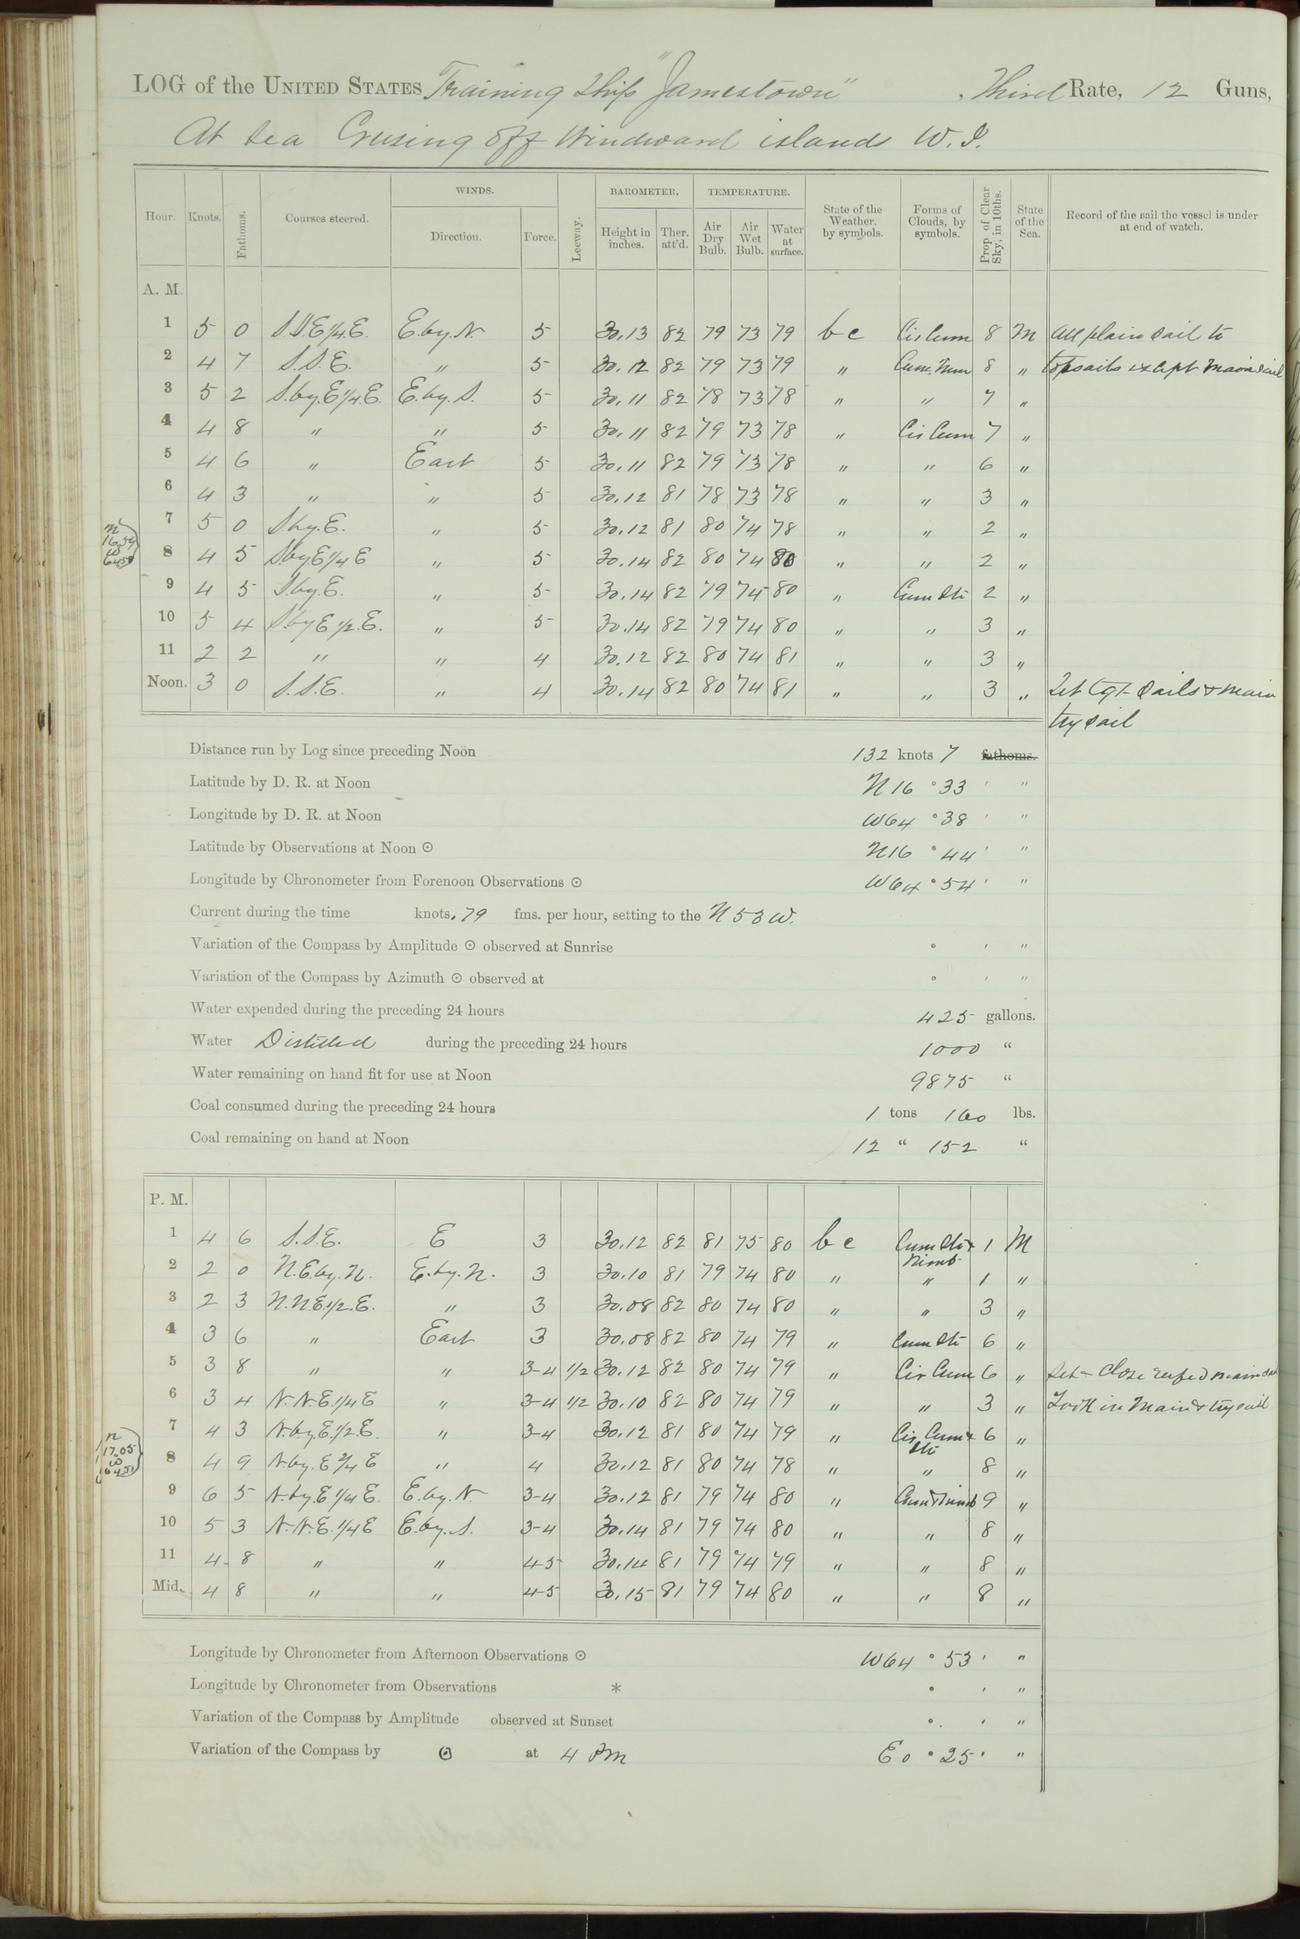 LOG of the UNITED STATES Training Ship "Jamestown", Third Rate, 12 Guns,
At Sea Crusing off Windward islands W. I.
WINDS. BAROMETER. TEMPERATURE.
Hour. Knots. Fathoms. Courses steered. Direction. Force. Leeway. Height in inches. Ther. att'd. Air Dry Bulb. Air Wet Bulb. Water at surface. State of the Weather, by symbols. Forms of Clouds, by symbols. Prop. of Clear Sky, in 10ths. State of the Sea. Record of the sail the vessel is under at end of watch.
A. M.
1 5 0 S.S.E 1/4 E. E. by. N. 5 30.13 82 79 73 79 b c Cir Cum 8 M All plain sail to
2 4 7 S.S.E. " 5 30.12 82 79 73 79 " Cum. Nim 8 " topsails except mainsail
3 5 2 S. by. E 1/4 E. E. by. S. 5 30.11 82 78 73 78 " " 7 "
4 4 8 " " 5 30.11 82 79 73 78 " Cir Cum 7 "
5 4 6 " East 5 30.11 82 79 73 78 " " 6 "
6 4 3 " " 5 30.12 81 78 73 78 " " 3 "
7 5 0 S by. E. " 5 30.12 81 80 74 78 " " 2 "
N 16.59 W 64.58
8 4 5 S by E 1/4 E " 5 30.14 82 80 74 80 " " 2 "
9 4 5 S. by. E. " 5 30.14 82 79 75 80 " Cum Sti 2 "
10 5 4 S. by E 1/2. E. " 5 30.14 82 79 74 80 " " 3 "
11 2 2 " " 4 30.12 82 80 74 81 " " 3 "
Noon. 3 0 S.S.E. " 4 30.14 82 80 74 81 " " 3 " Set tgt sails & main
try sail
Distance run by Log since preceding Noon 132 knots 7 fathoms.
Latitude by D. R. at Noon N 16 ° 33 ' "
Longitude by D. R. at Noon W 64 ° 38 ' "
Latitude by Observations at Noon ⊙ N 16 ° 44 ' "
Longitude by Chronometer from Forenoon Observations ⊙ W 64 ° 54 ' "
Current during the time knots .79 fms. per hour, setting to the N 53 W.
Variation of the Compass by Amplitude ⊙ observed at Sunrise ° ' "
Variation of the Compass by Azimuth ⊙ observed at ° ' "
Water expended during the preceding 24 hours 425 gallons.
Water Distilled during the preceding 24 hours 1000 "
Water remaining on hand fit for use at Noon 9875 "
Coal consumed during the preceding 24 hours 1 tons 160 lbs.
Coal remaining on hand at Noon 12 " 152 "
P. M.
1 4 6 S.S.E. E 3 30.12 82 81 75 80 b c Cum Sti & 1 M
Nimb
2 2 0 N.E. by. N. E. by. N. 3 30.10 81 79 74 80 " " 1 "
3 2 3 N. N E. 1/2. E. " 3 30.08 82 80 74 80 " " 3 "
4 3 6 " East 3 30.08 82 80 74 79 " Cum Sti 6 "
5 3 8 " " 3-4 1/2 30.12 82 80 74 79 " Cir Cum 6 " Set close reefed mainsail
6 3 4 N.N.E. 1/4 E " 3-4 1/2 30.10 82 80 74 79 " " 3 " Took in main try sail
7 4 3 N. by E. 1/2 E. " 3-4 30.12 81 80 74 79 " Cir Cum & 6 "
Sti
N 17.05 W
8 4 9 N by. E 3/4 E " 4 30.12 81 80 74 78 " " 8 "
9 6 5 N. by. E 1/4 E. E. by. N. 3-4 30.12 81 79 74 80 " Cum & Nimb 9 "
10 5 3 N.N.E. 1/4 E E. by. S. 3-4 30.14 81 79 74 80 " " 8 "
11 4 8 " " 4-5 30.14 81 79 74 79 " " 8 "
Mid. 4 8 " " 4-5 30.15 81 79 74 80 " " 8 "
Longitude by Chronometer from Afternoon Observations ⊙ W 64 ° 53 ' "
Longitude by Chronometer from Observations * ° ' "
Variation of the Compass by Amplitude observed at Sunset ° ' "
Variation of the Compass by ⊙ at 4 PM E 0 ° 25 ' "